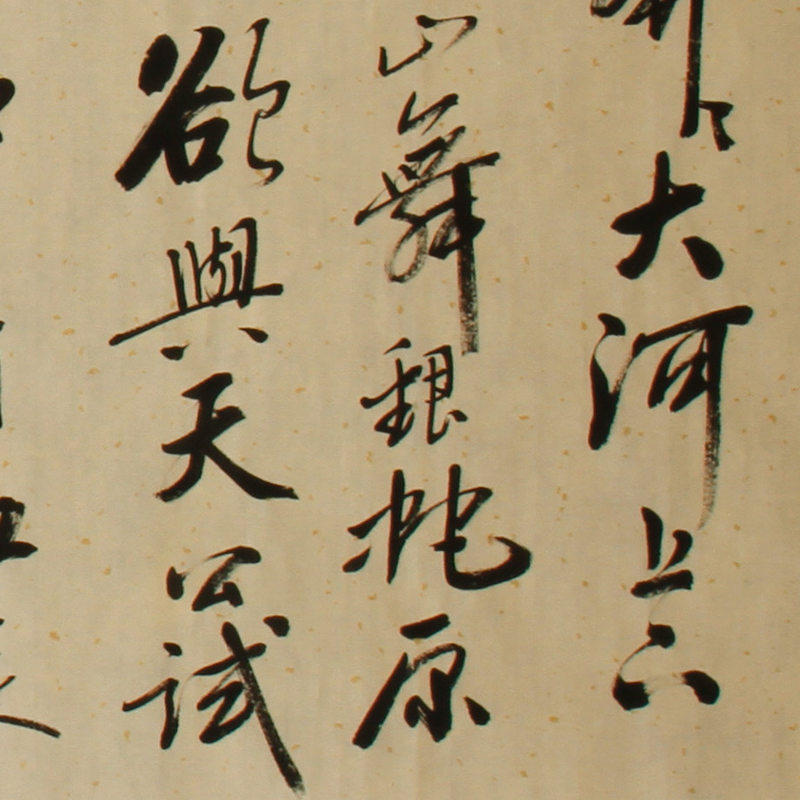 大河上下
山舞銀蛇原
欲與天公試